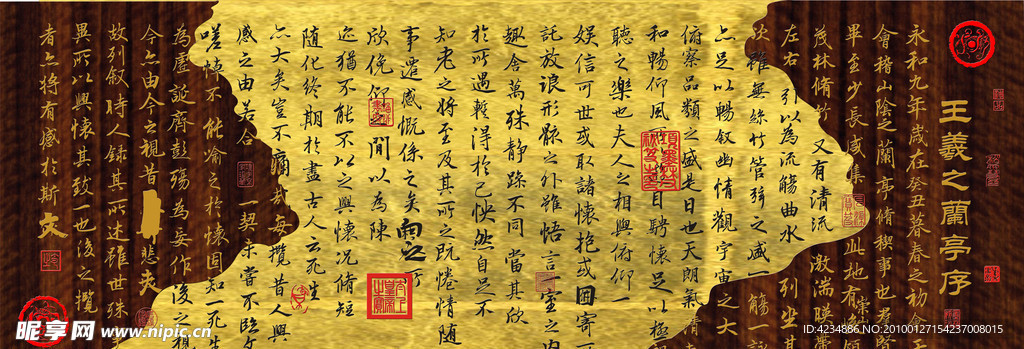 王羲之蘭亭序
永和九年歲在癸丑暮春之初會
會稽山陰之蘭亭脩稧事也羣
畢至少長咸集此地有崇山
茂林脩竹又有清流激湍暎
左右引以為流觴曲水列坐其
次雖無絲竹管弦之盛一觴一詠
亦足以暢叙幽情觀宇宙之大
俯察品類之盛是日也天朗氣清
和暢仰風目騁懷足以極
聽之樂也夫人之相與俯仰一
娛信可世或取諸懷抱或因寄
託放浪形骸之外雖悟言一室之内
趣舍萬殊静躁不同當其欣
於所遇輕得於己怏然自足不
知老之將至及其所之既惓情随
事遷感慨係之矣向之所
欣俛仰間以為陳
迹猶不能不以之興懷況脩短
随化終期於盡古人云死生
亦大矣豈不痛哉每攬昔人興
感之由若合一契未嘗不臨文
嗟悼不能喻之於懷固知一死生
為虛誕齊彭殤為妄作後之視
今亦由今之視昔悲夫
故列叙時人録其所述雖世殊
異所以興懷其致一也後之攬
者亦將有感於斯文
昵享网 www.nipic.cn
ID:4234886 NO:20100127154237008015